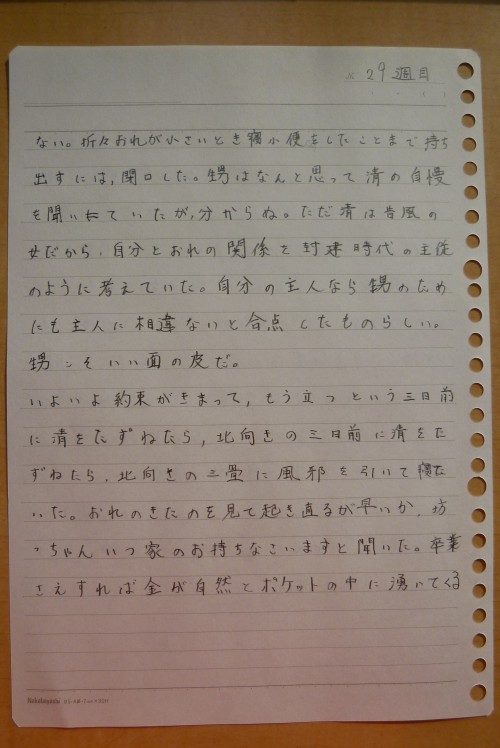 × 29週目
ない。折々おれが小さいとき寝小便をしたことまで持ち
出すには、閉口した。甥はなんと思って清の自慢
を聞いていたか、分からぬ。ただ清は昔風の
女だから、自分とおれの関係を封建時代の主従
のように考えていた。自分の主人なら甥のため
にも主人に相違ないと合点したものらしい。
甥こそいい面の皮だ。
いよいよ約束がきまって、もう立つという三日前
に清をたずねたら、北向きの三日前に清をた
ずねたら、北向きの三畳に風邪を引いて寝て
いた。おれのきたのを見て起き直るが早いか、坊
っちゃんいつ家のお持ちなさいますと聞いた。卒業
さえすれば金が自然とポケットの中に湧いてくる
Nakabayashi